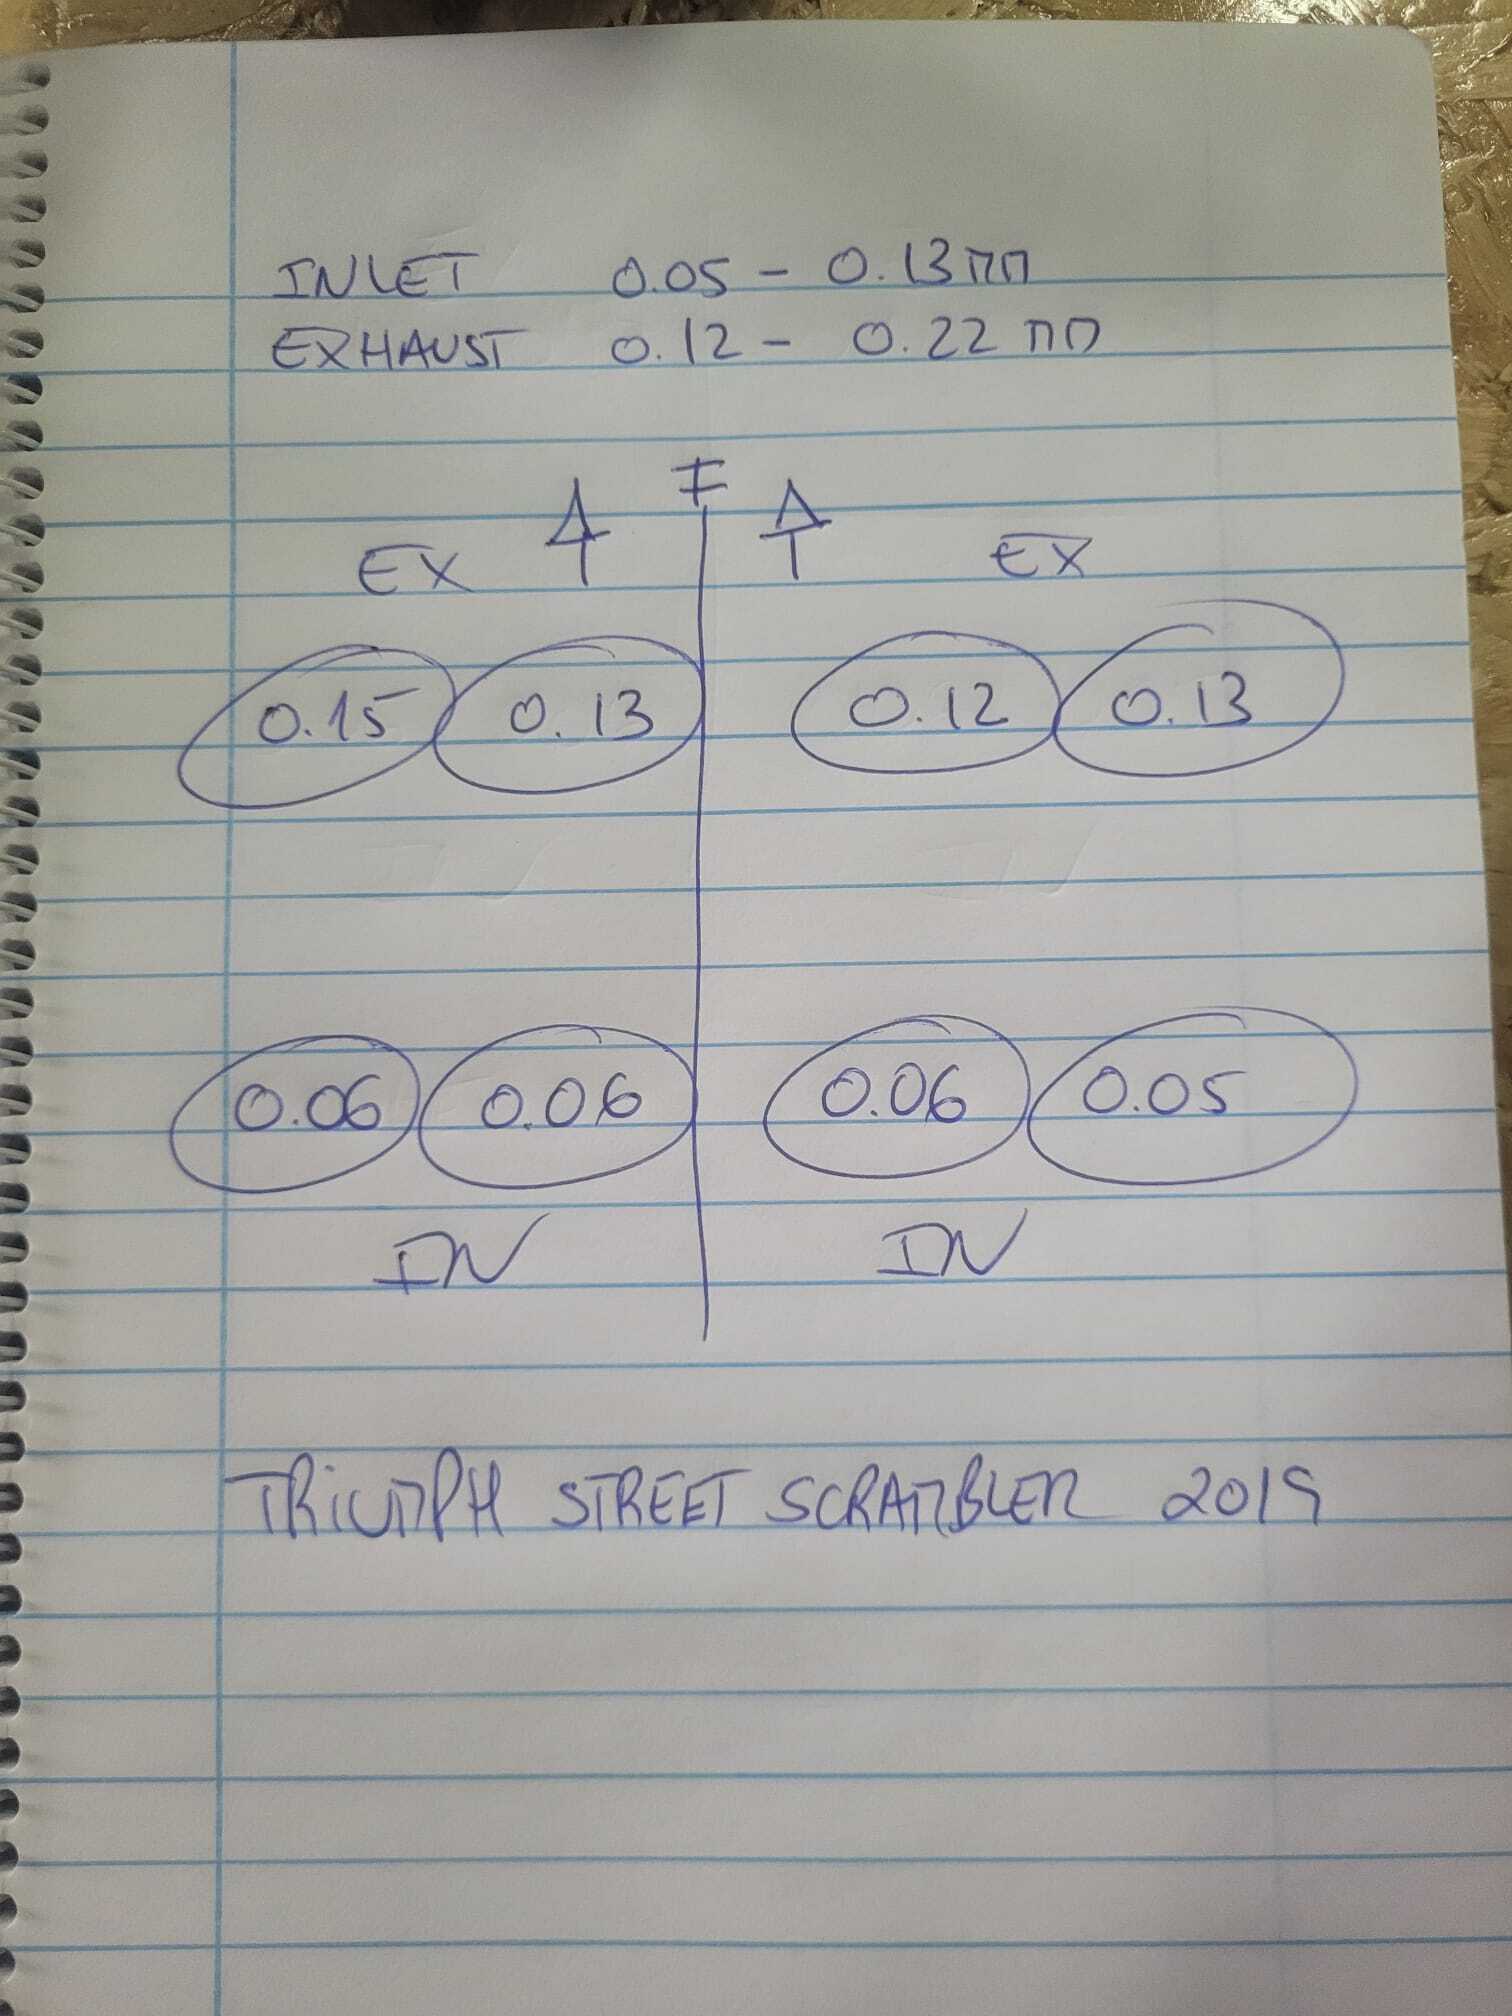 INLET 0.05 - 0.13mm
EXHAUST 0.12 - 0.22 mm
F
EX EX
0.15 0.13 0.12 0.13
0.06 0.06 0.06 0.05
IN IN
TRIUMPH STREET SCRAMBLER 2019